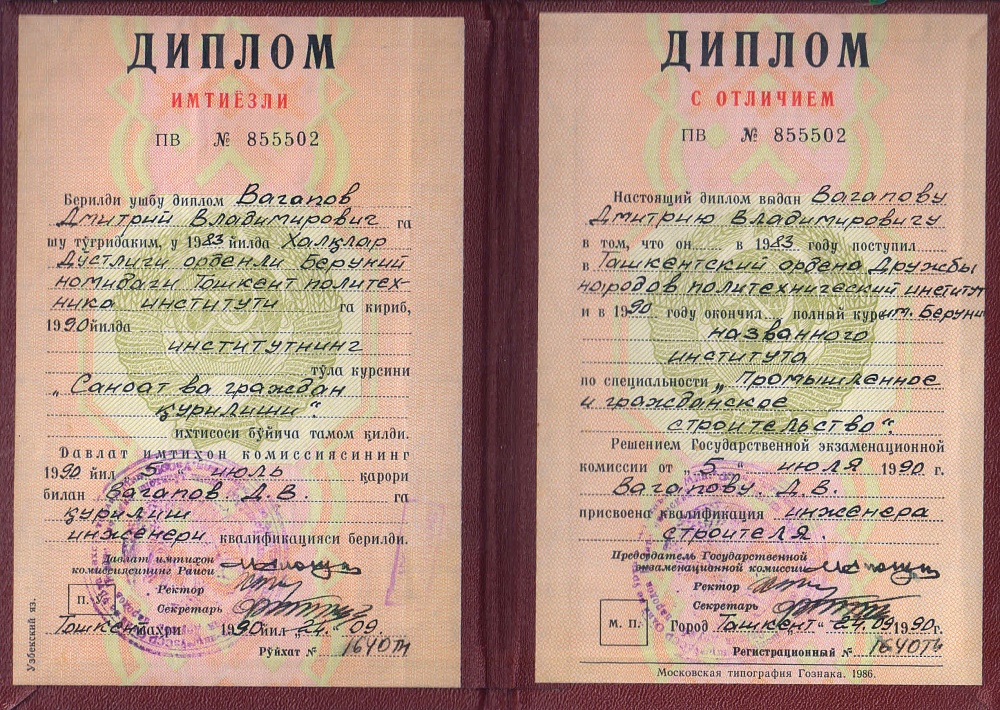 ДИПЛОМ
ИМТИЁЗЛИ
ПВ № 855502
Берилди ушбу диплом Вагапов
Дмитрий Владимирович га
шу тўғридаким, у 1983 йилда Халқлар
Дўстлиги орденли Беруний
номидаги Тошкент политех-
ника институти га кириб,
1990 йилда
институтнинг
тўла курсини
„Саноат ва граждан
қурилиши“
ихтисоси бўйича тамом қилди.
Давлат имтиҳон комиссиясининг
1990 йил „5“ июль қарори
билан Вагапов Д.В. га
қурилиш
инженери квалификацияси берилди.
Давлат имтиҳон
комиссиясининг Раиси
Ректор
Секретарь
П.
Тошкент шаҳри 1990 йил 24.09.
Рўйхат №
Узбекский яз.
ДИПЛОМ
С ОТЛИЧИЕМ
ПВ № 855502
Настоящий диплом выдан Вагапову
Дмитрию Владимировичу
в том, что он в 1983 году поступил
в Ташкентский ордена Дружбы
народов политехнический институт
и в 1990 году окончил полный курс им. Беруни
названного
института
по специальности „Промышленное
и гражданское
строительство“.
Решением Государственной экзаменационной
комиссии от „5“ июля 1990 г.
Вагапову Д.В.
присвоена квалификация инженера
строителя.
Председатель Государственной
экзаменационной комиссии
Ректор
Секретарь
М. П.
Город Ташкент 24.09 1990г.
Регистрационный №
Московская типография Гознака. 1986.